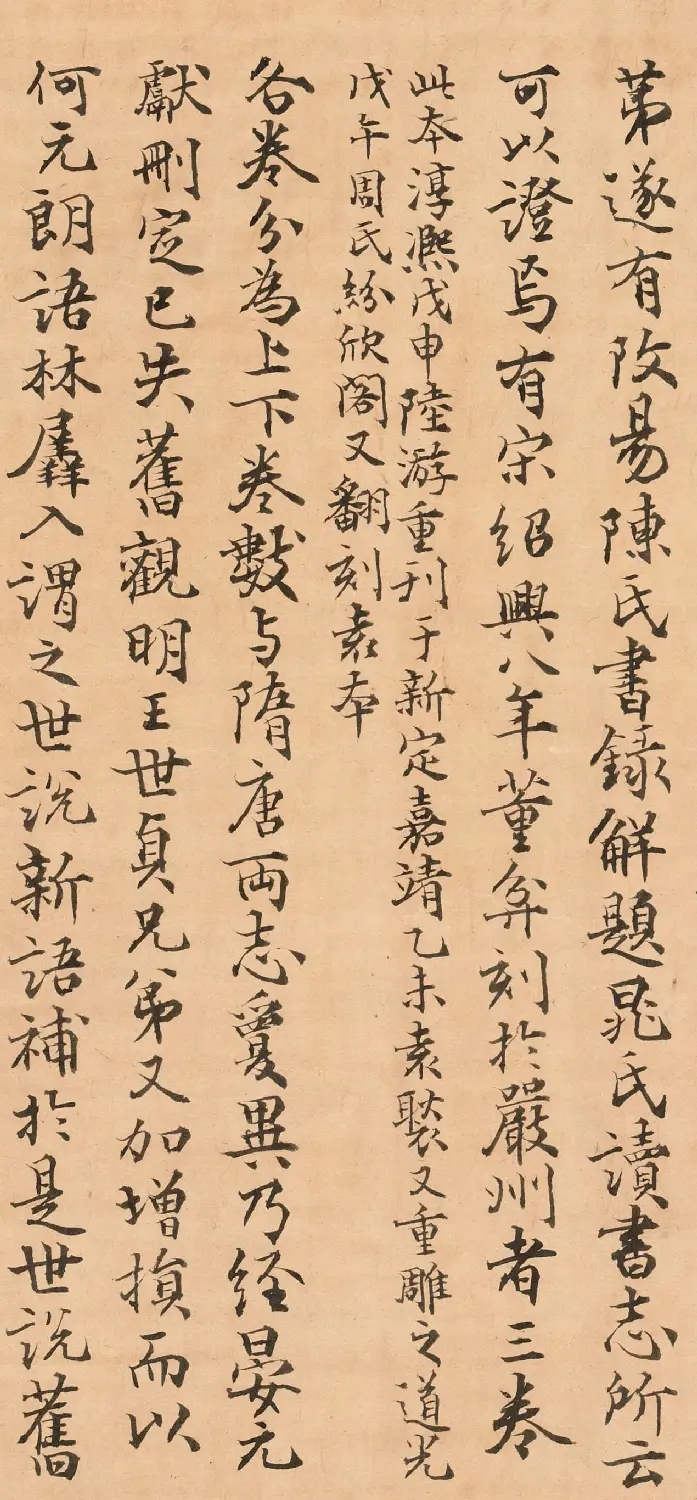 苐遂有攺易陳氏書録解題晁氏讀書志所云
可以證焉有宋紹興八年董弅刻扵嚴州者三卷
此本淳熈戊申陸游重刋于新定嘉靖乙未袁褧又重雕之道光
戊午周氏紛欣閣又翻刻袁本
各卷分為上下卷數与隋唐兩志敻異乃經晏元
獻刪定已失舊觀明王世貞兄弟又加增損而以
何元朗語林羼入謂之世説新語補扵是世説舊